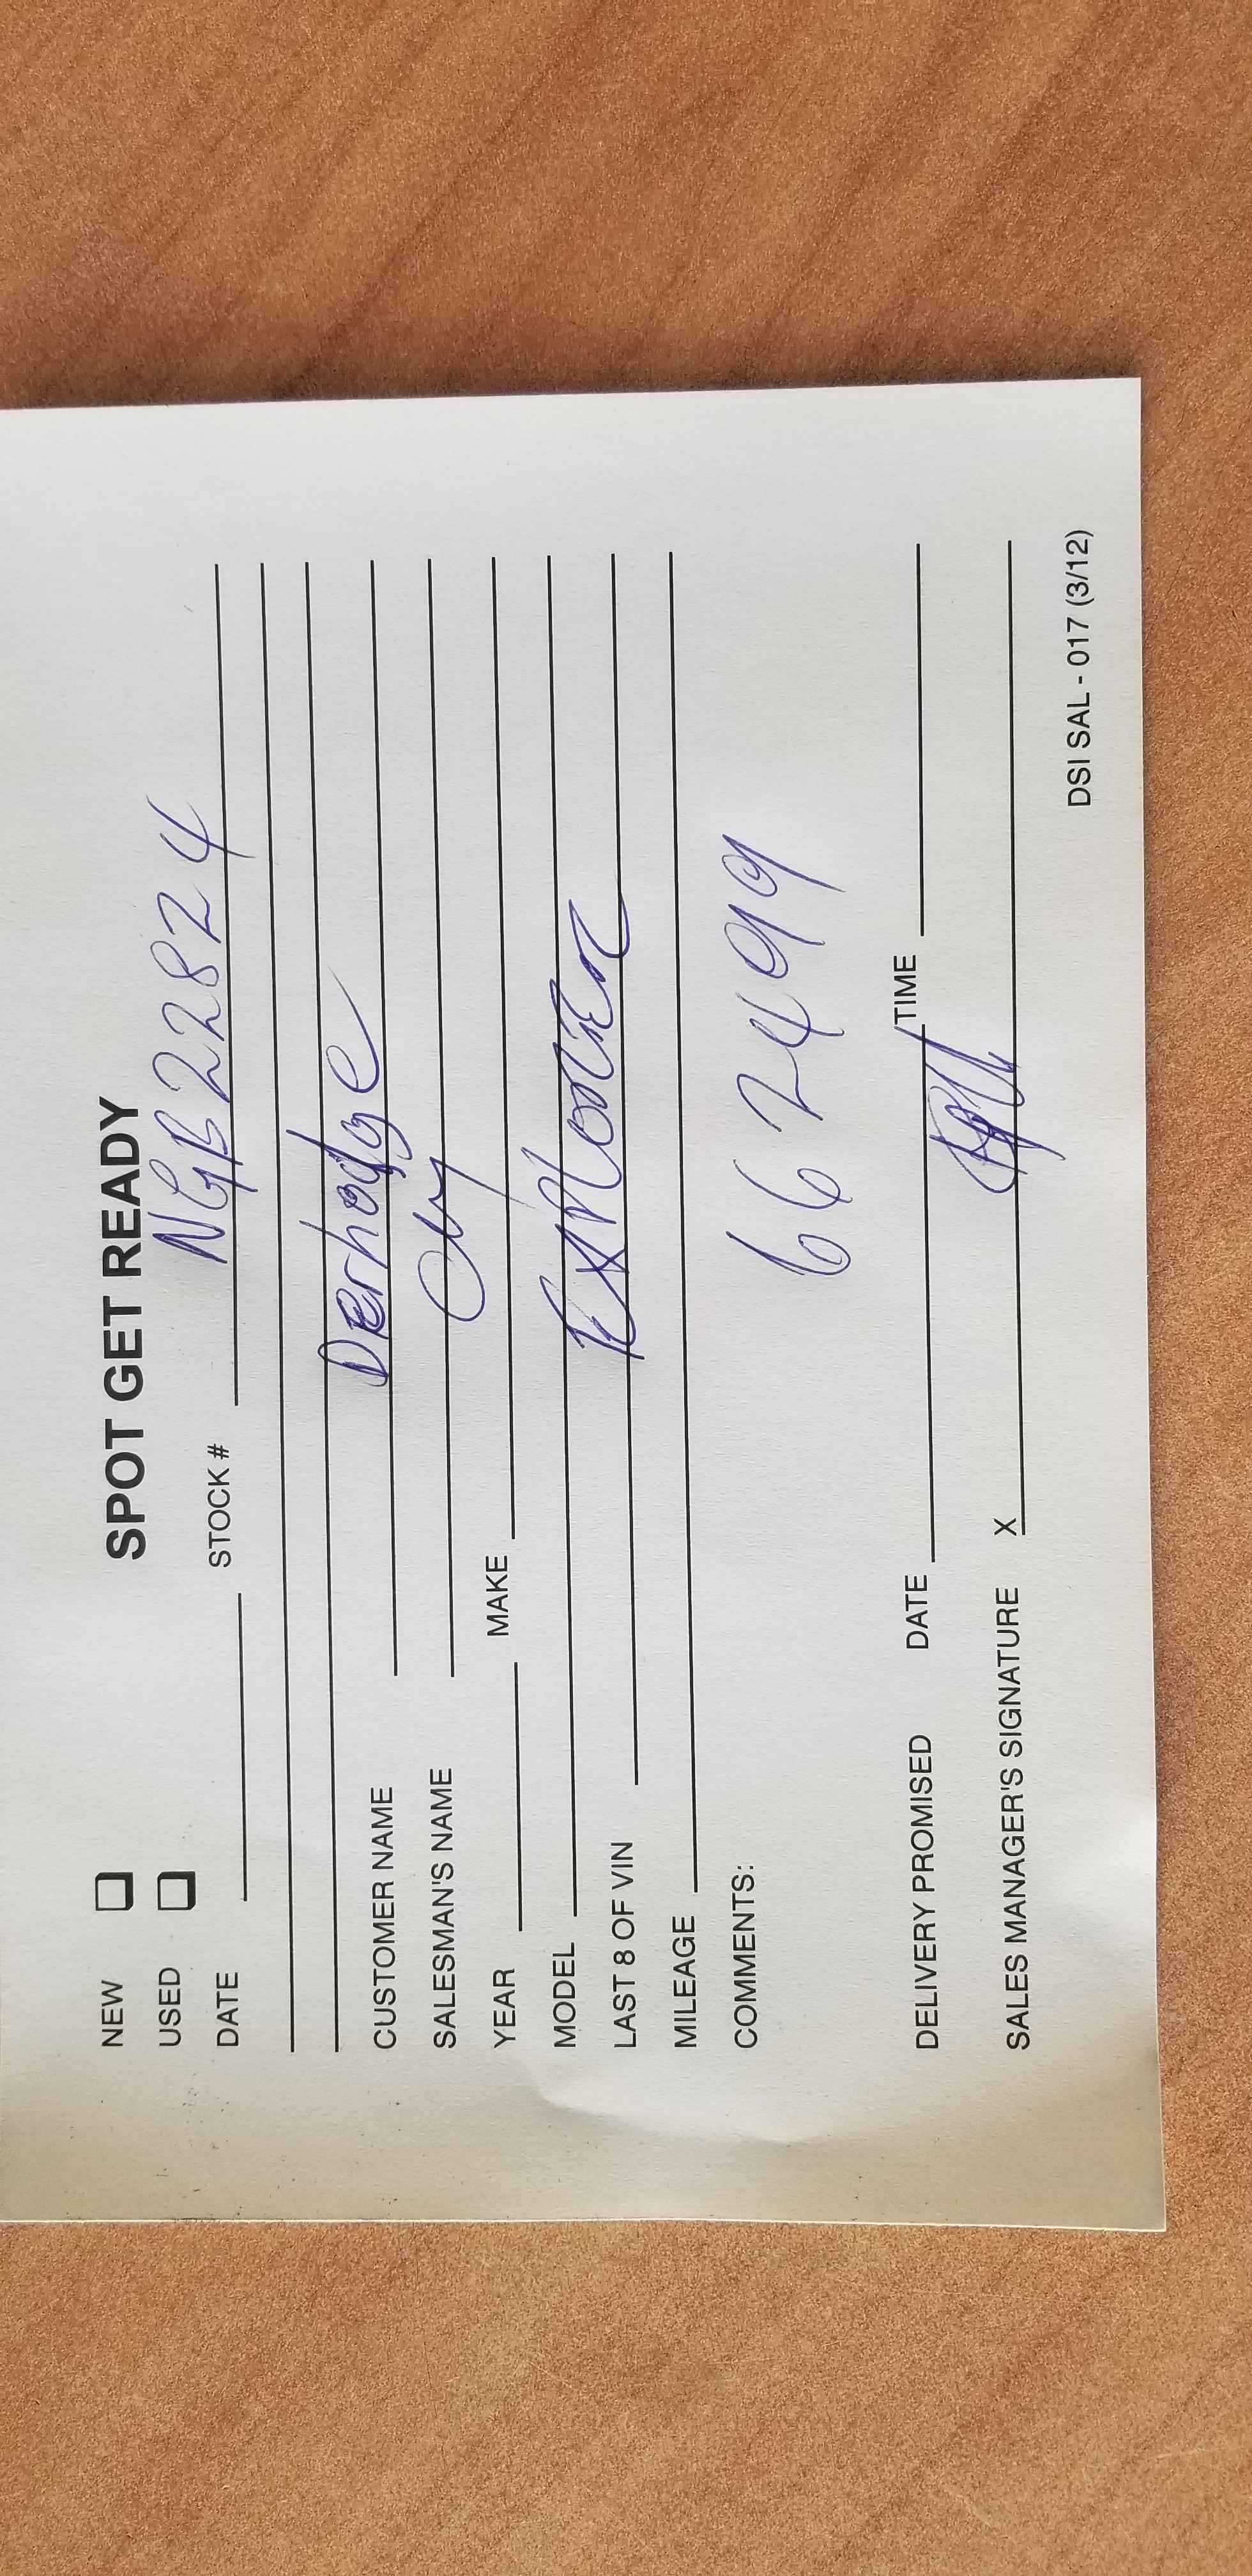 SPOT GET READY
NEW
USED
DATE STOCK # NGB22824
CUSTOMER NAME
SALESMAN'S NAME
YEAR MAKE
MODEL
LAST 8 OF VIN
MILEAGE
COMMENTS: 662499
DELIVERY PROMISED DATE TIME
SALES MANAGER'S SIGNATURE X
DSI SAL - 017 (3/12)